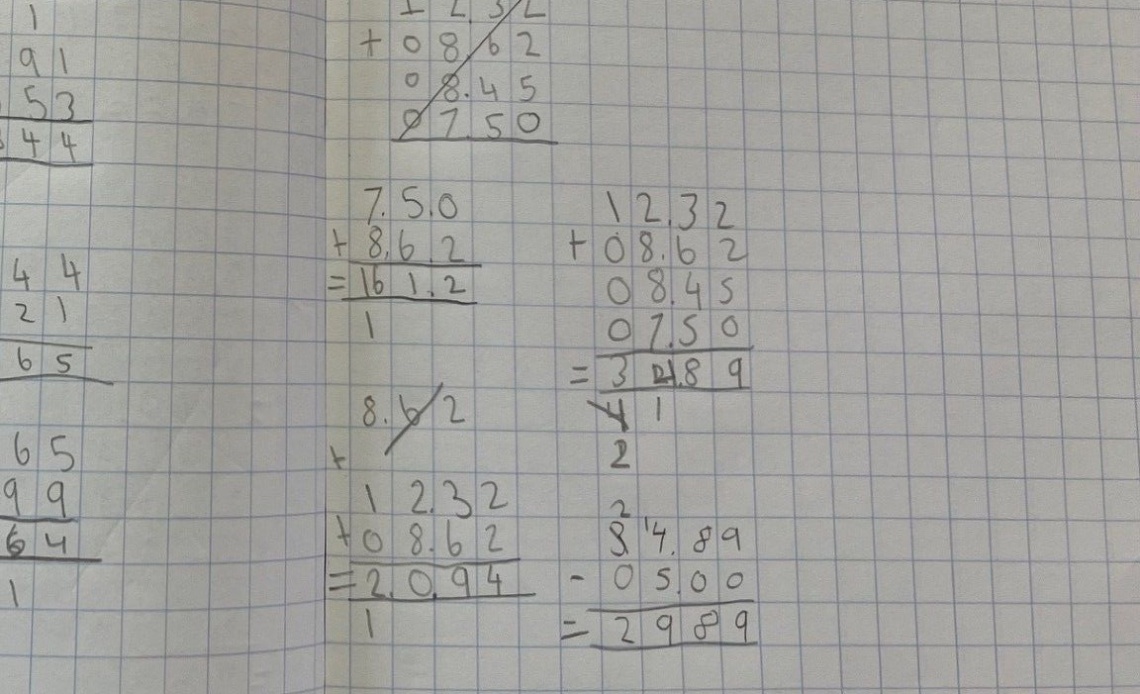 1
91
53
44
44
21
65
65
99
64
1
+ 08.62
08.45
07.50
7.5.0
+ 8.6.2
= 161.2
1
8.62
+
12.32
+ 08.62
= 2.0.94
1
12.32
+ 08.62
08.45
07.50
= 34.89
4 1
2
2
3 14.89
- 05.00
= 2989